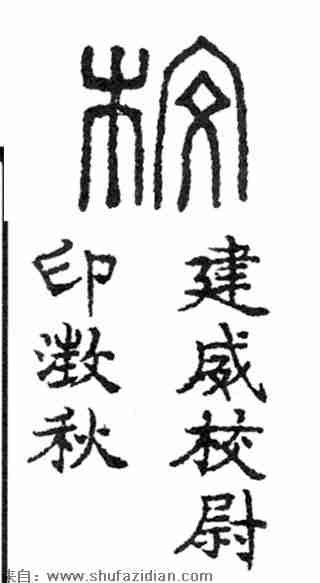 校
建威校尉
印澂秋
集自：www.shufazidian.com